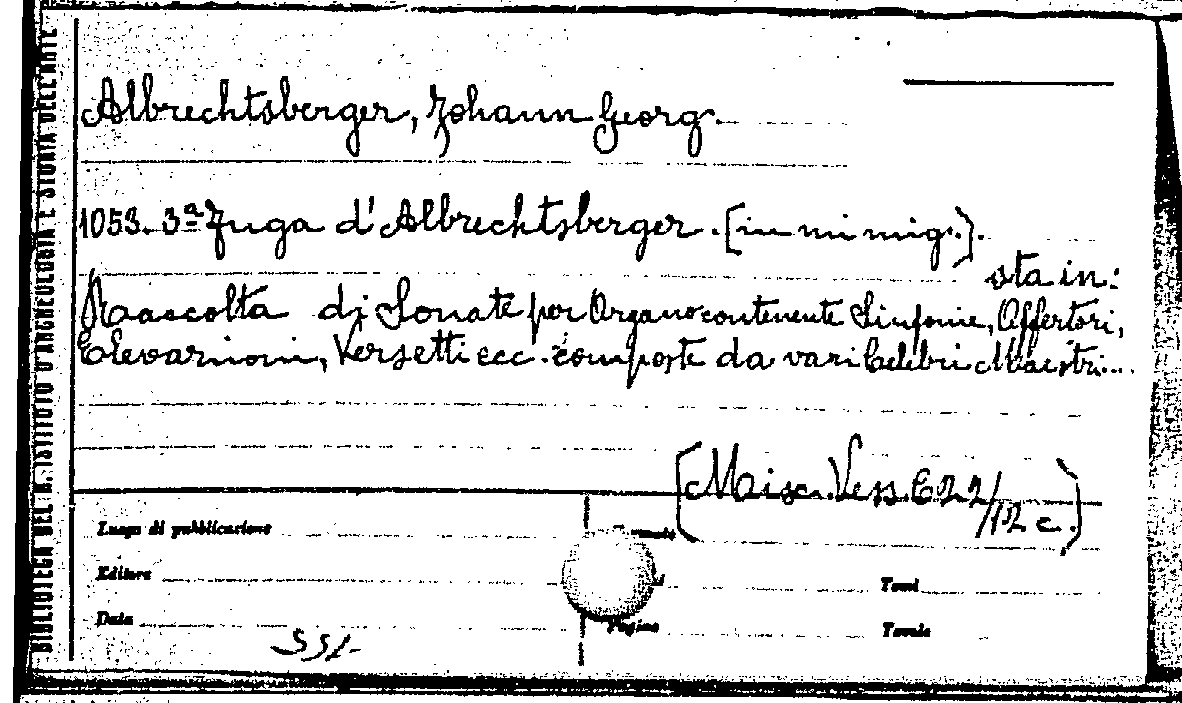 BIBLIOTECA DEL R. ISTITUTO D'ARCHEOLOGIA E STORIA DELL'ARTE
Albrechtsberger, Johann Georg.
1053. 3ª Fuga d'Albrechtsberger. [in mi mig.].
sta in:
Raccolta di Sonate per Organo contenente Sinfonie, Offertori,
Elevazioni, Versetti ecc. composte da vari Celebri Maestri...
[Misc. Vess. 622/12 c.]
Luogo di pubblicazione
Editore
Tomi
Data
Pagine
Tavole